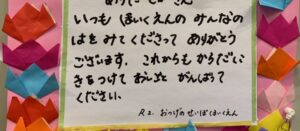 いつも ほいくえんの みんなの
はを みてくださって ありがとう
ございます。これからも からだに
きをつけて おしごと がんばって
ください。
R2. おつげの せいぼ ほいくえん